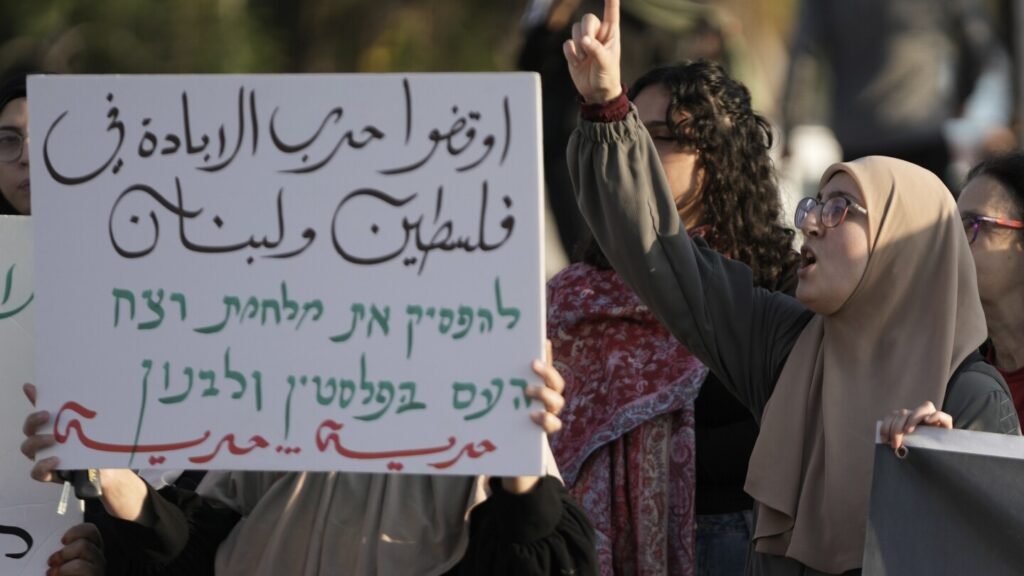 اوقفوا حرب الابادة في
فلسطين ولبنان
להפסיק את מלחמת רצח
העם בפלסטין ולבנון
حرية ... حرية